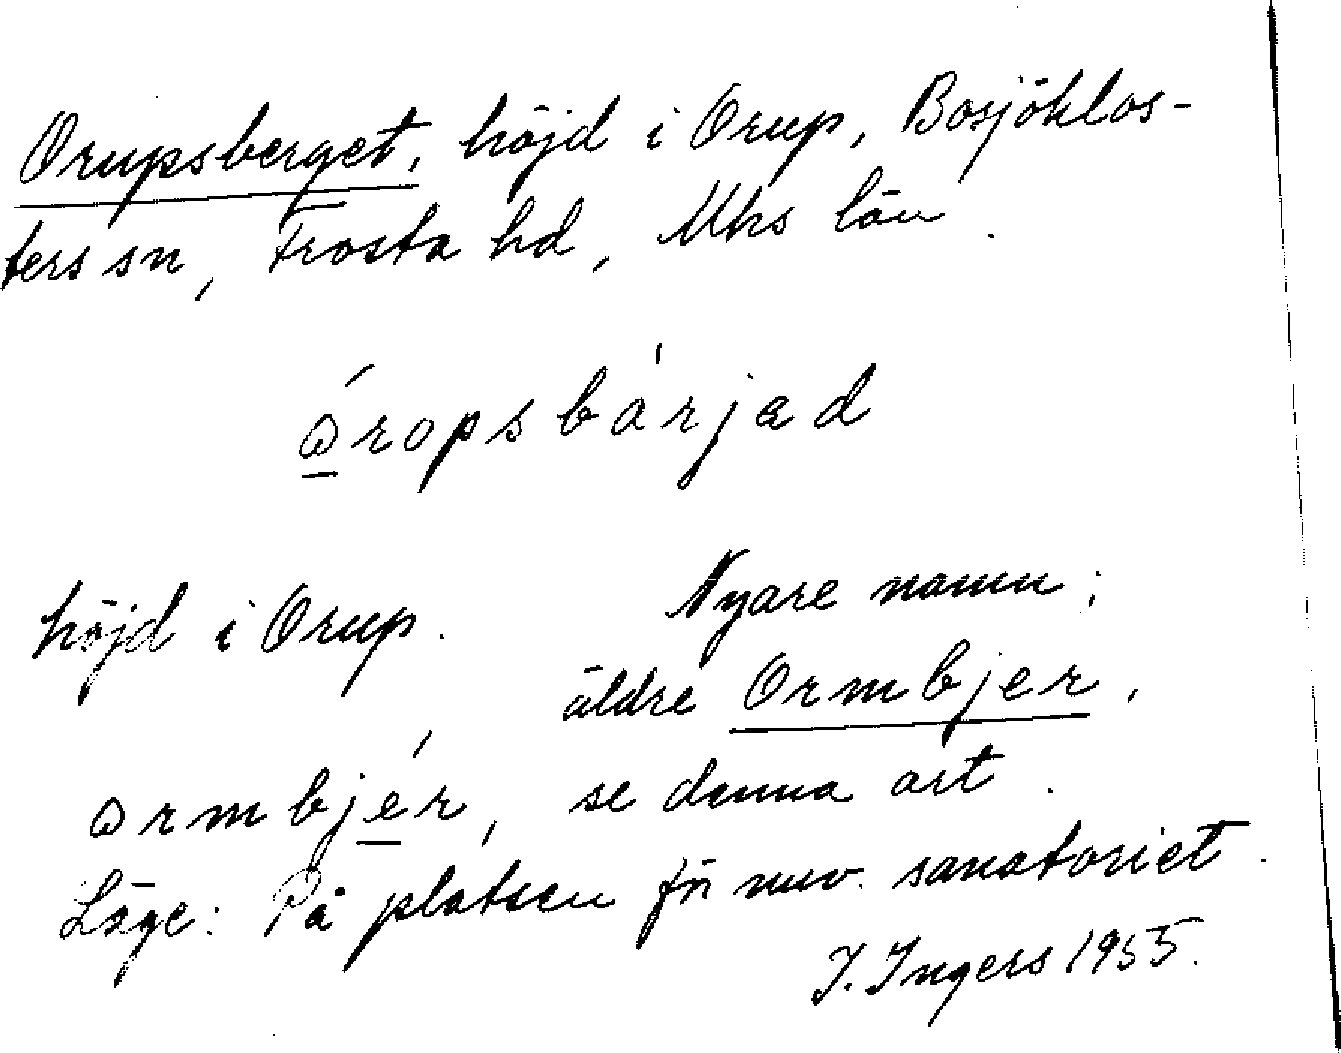 Orupsberget, höjd i Orup, Bosjöklos-
ters sn, Frosta hd, Mhs län.
åropsbárjad
höjd i Orup. Nyare namn;
äldre Ormbjer,
årmbjér, se denna art.
Läge: På platsen för nuv. sanatoriet.
I. Ingers 1955.